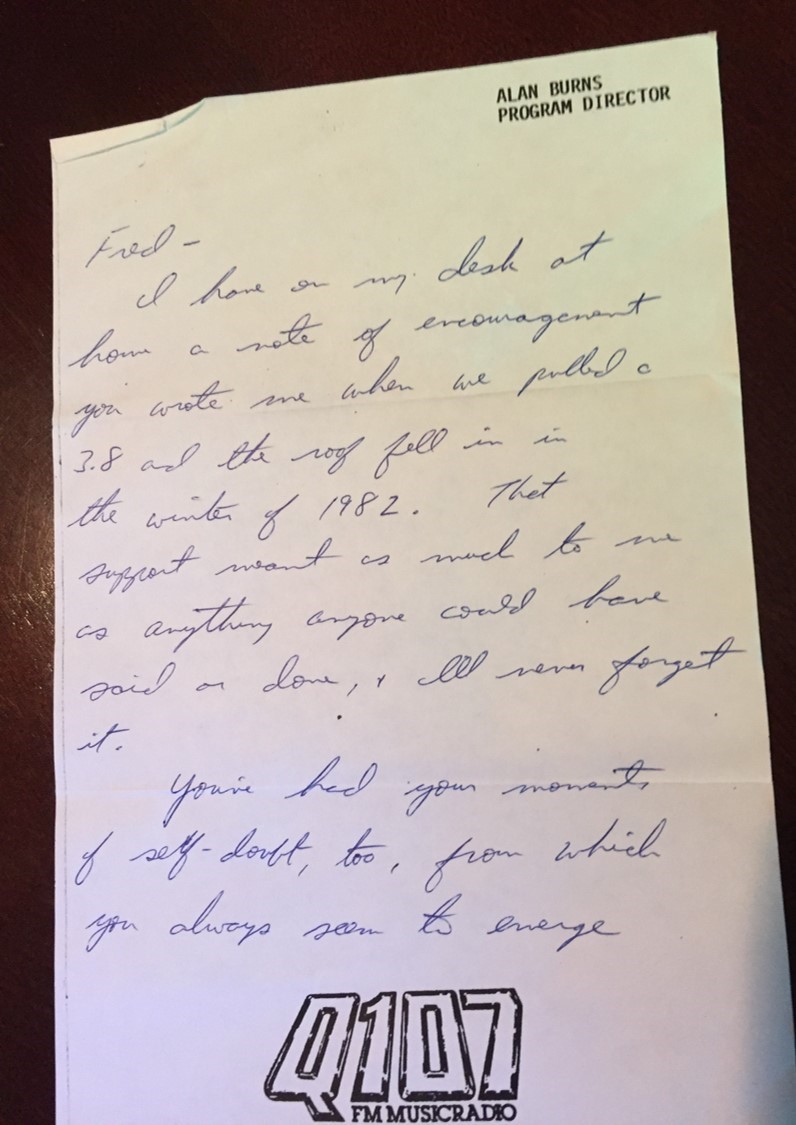 ALAN BURNS
PROGRAM DIRECTOR
Fred -
I have on my desk at
home a note of encouragement
you wrote me when we pulled a
3.8 and the roof fell in in
the winter of 1982. That
support meant as much to me
as anything anyone could have
said or done, + I'll never forget
it.
You've had your moments
of self-doubt, too, from which
you always seem to emerge
Q107
FM MUSICRADIO